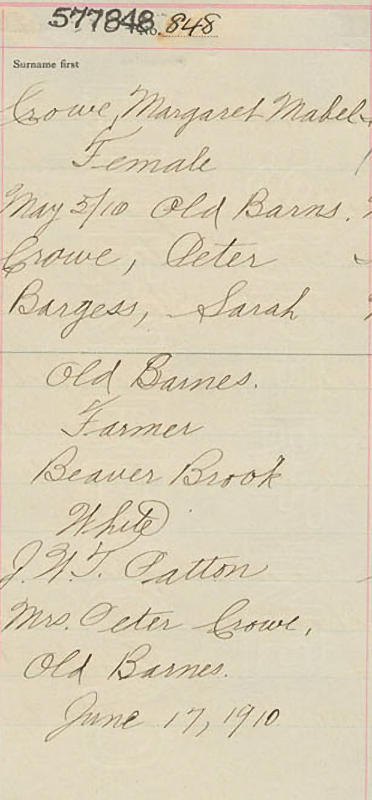 577848
No. 848
Surname first
Crowe, Margaret Mabel
Female
May 5/10 Old Barns.
Crowe, Peter
Bargess, Sarah
Old Barnes.
Farmer
Beaver Brook
White
J. W. T. Patton
Mrs. Peter Crowe,
Old Barnes.
June 17, 1910